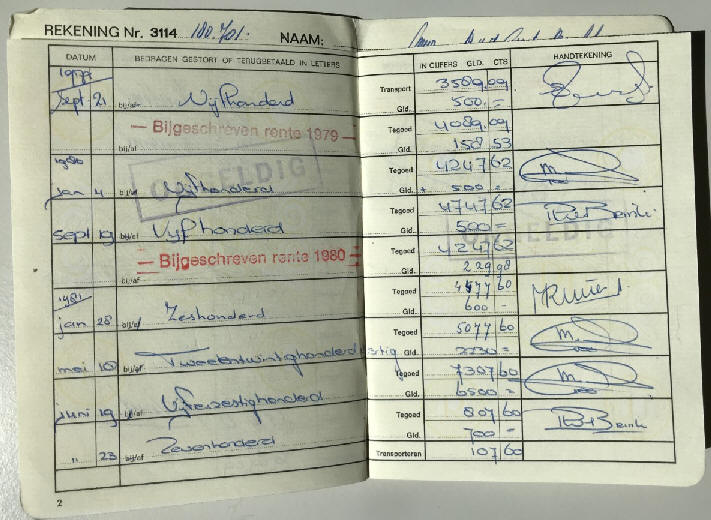 REKENING Nr. 3114 180.701. NAAM:
DATUM BEDRAGEN GESTORT OF TERUGBETAALD IN LETTERS IN CIJFERS GLD. CTS HANDTEKENING
1979
Transport 3589,09
sept. 21 bij/af Vijfhonderd Gld. 500,=
Tegoed 4089,09
— Bijgeschreven rente 1979 —
bij/af Gld. 158 53
1980
Tegoed 4247 62
ONGELDIG
jan 4 bij/af Vijfhonderd Gld. + 500 =
Tegoed 4747 62
sept 19 bij/af Vijfhonderd Gld. 500 =
ONGELDIG
Tegoed 4247 62
— Bijgeschreven rente 1980 —
bij/af Gld. 229 98
1981
Tegoed 4477 60
jan 28 bij/af Zeshonderd Gld. 600 -
Tegoed 5077 60
mei 18 bij/af Tweeentwintighonderdertig Gld. 2230 =
Tegoed 7307 60
juni 19 bij/af Vijfenzestighonderd Gld. 6500 =
Tegoed 807 60
„ 23 bij/af Zevenhonderd Gld. 700 =
Transporteren 107 60
2